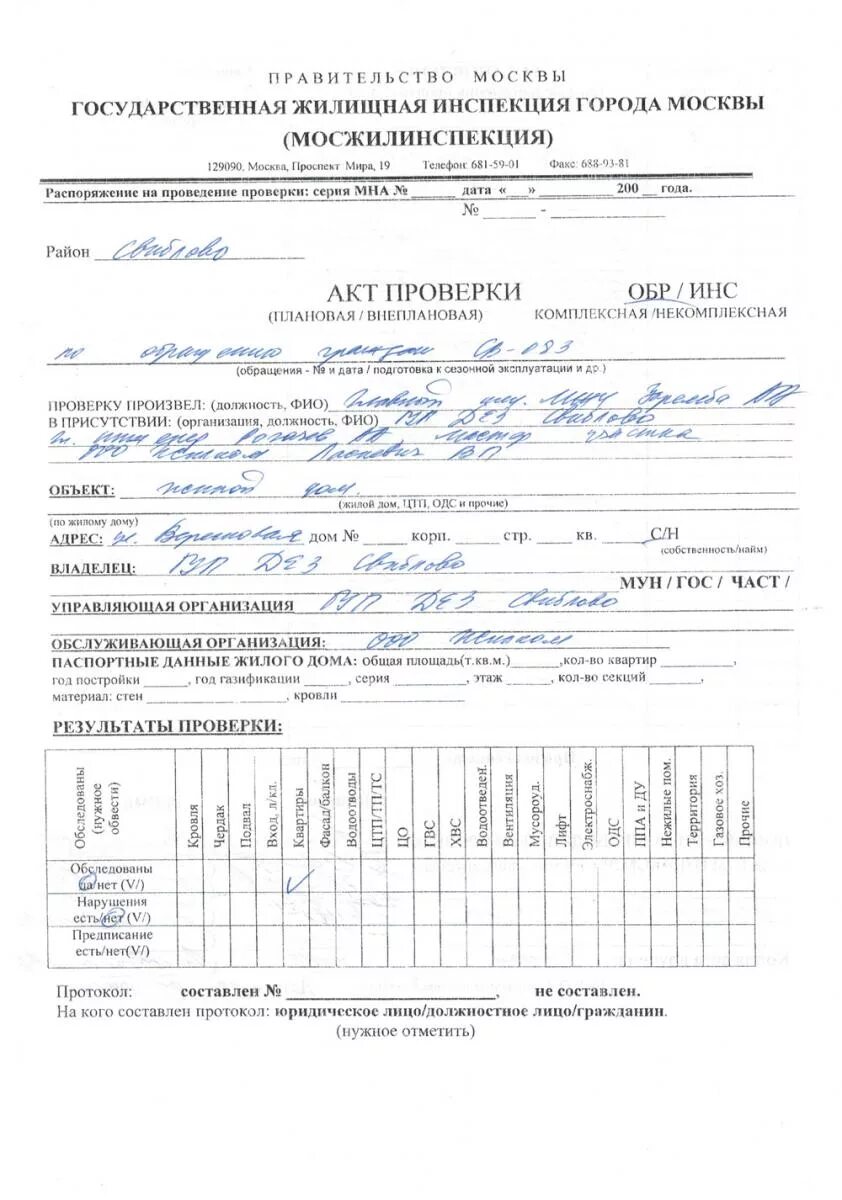 ПРАВИТЕЛЬСТВО МОСКВЫ
ГОСУДАРСТВЕННАЯ ЖИЛИЩНАЯ ИНСПЕКЦИЯ ГОРОДА МОСКВЫ
(МОСЖИЛИНСПЕКЦИЯ)
129090, Москва, Проспект Мира, 19 Телефон: 681-59-01 Факс: 688-93-81
Распоряжение на проведение проверки: серия МНА № ______ дата «___» __________ 200 __ года.
№ _______ - _______________
Район Свиблово
АКТ ПРОВЕРКИ ОБР / ИНС
(ПЛАНОВАЯ / ВНЕПЛАНОВАЯ) КОМПЛЕКСНАЯ /НЕКОМПЛЕКСНАЯ
по обращению граждан СВ-083
(обращения - № и дата / подготовка к сезонной эксплуатации и др.)
ПРОВЕРКУ ПРОИЗВЕЛ: (должность, ФИО) Главной
В ПРИСУТСТВИИ: (организация, должность, ФИО) ГУП ДЕЗ Свиблово
гл. инженер Мастер участка
ООО
ОБЪЕКТ: жилой дом.
(жилой дом, ЦТП, ОДС и прочие)
(по жилому дому)
АДРЕС: ул. Вересковая дом № _____ корп. _____ стр. ____ кв. _____ С/Н
(собственность/найм)
ВЛАДЕЛЕЦ: ГУП ДЕЗ Свиблово
МУН / ГОС / ЧАСТ /
УПРАВЛЯЮЩАЯ ОРГАНИЗАЦИЯ ГУП ДЕЗ Свиблово
ОБСЛУЖИВАЮЩАЯ ОРГАНИЗАЦИЯ: ООО
ПАСПОРТНЫЕ ДАННЫЕ ЖИЛОГО ДОМА: общая площадь(т.кв.м.)_______,кол-во квартир __________,
год постройки ______, год газификации ______, серия __________, этаж ______, кол-во секций _______,
материал: стен ____________________, кровли _____________________
РЕЗУЛЬТАТЫ ПРОВЕРКИ:
Обследованы (нужное обвести) Кровля Чердак Подвал Вход. л/кл. Квартиры Фасад/балкон Водоотводы ЦТП/ТП/ТС ЦО ГВС ХВС Водоотведен. Вентиляция Мусороуд. Лифт Электроснабж. ОДС ППА и ДУ Нежилые пом. Территория Газовое хоз. Прочие
Обследованы
да/нет (V/) V
Нарушения
есть/нет (V/)
Предписание
есть/нет(V/)
Протокол: составлен № _________________________, не составлен.
На кого составлен протокол: юридическое лицо/должностное лицо/гражданин.
(нужное отметить)